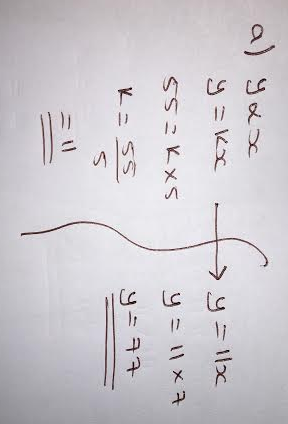 a) y α x
y = kx
55 = k × 5
k = 55/5
= 11
→ y = 11x
y = 11 × 7
y = 77